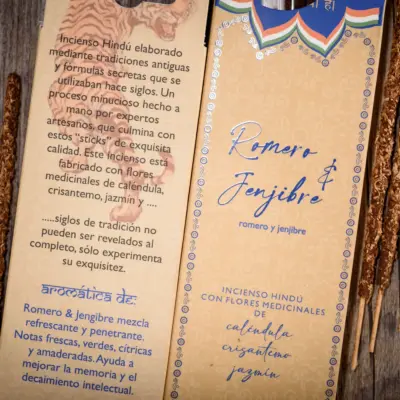 Incienso Hindú elaborado
mediante tradiciones antiguas
y fórmulas secretas que se
utilizaban hace siglos. Un
proceso minucioso hecho a
mano por expertos
artesaños, que culmina con
estos "sticks" de exquisita
calidad. Este Incienso está
fabricado con flores
medicinales de caléndula,
crisantemo, jazmín y ....
.....siglos de tradición no
pueden ser revelados al
completo, sólo experimenta
su exquisitez.
aromática de:
Romero & Jengibre mezcla
refrescante y penetrante.
Notas frescas, verdes, cítricas
y amaderadas. Ayuda a
mejorar la memoria y el
decaimiento intelectual.
Romero
& Jenjibre
romero y jenjibre
INCIENSO HINDÚ
CON FLORES MEDICINALES
DE
caléndula
crisantemo
jazmín